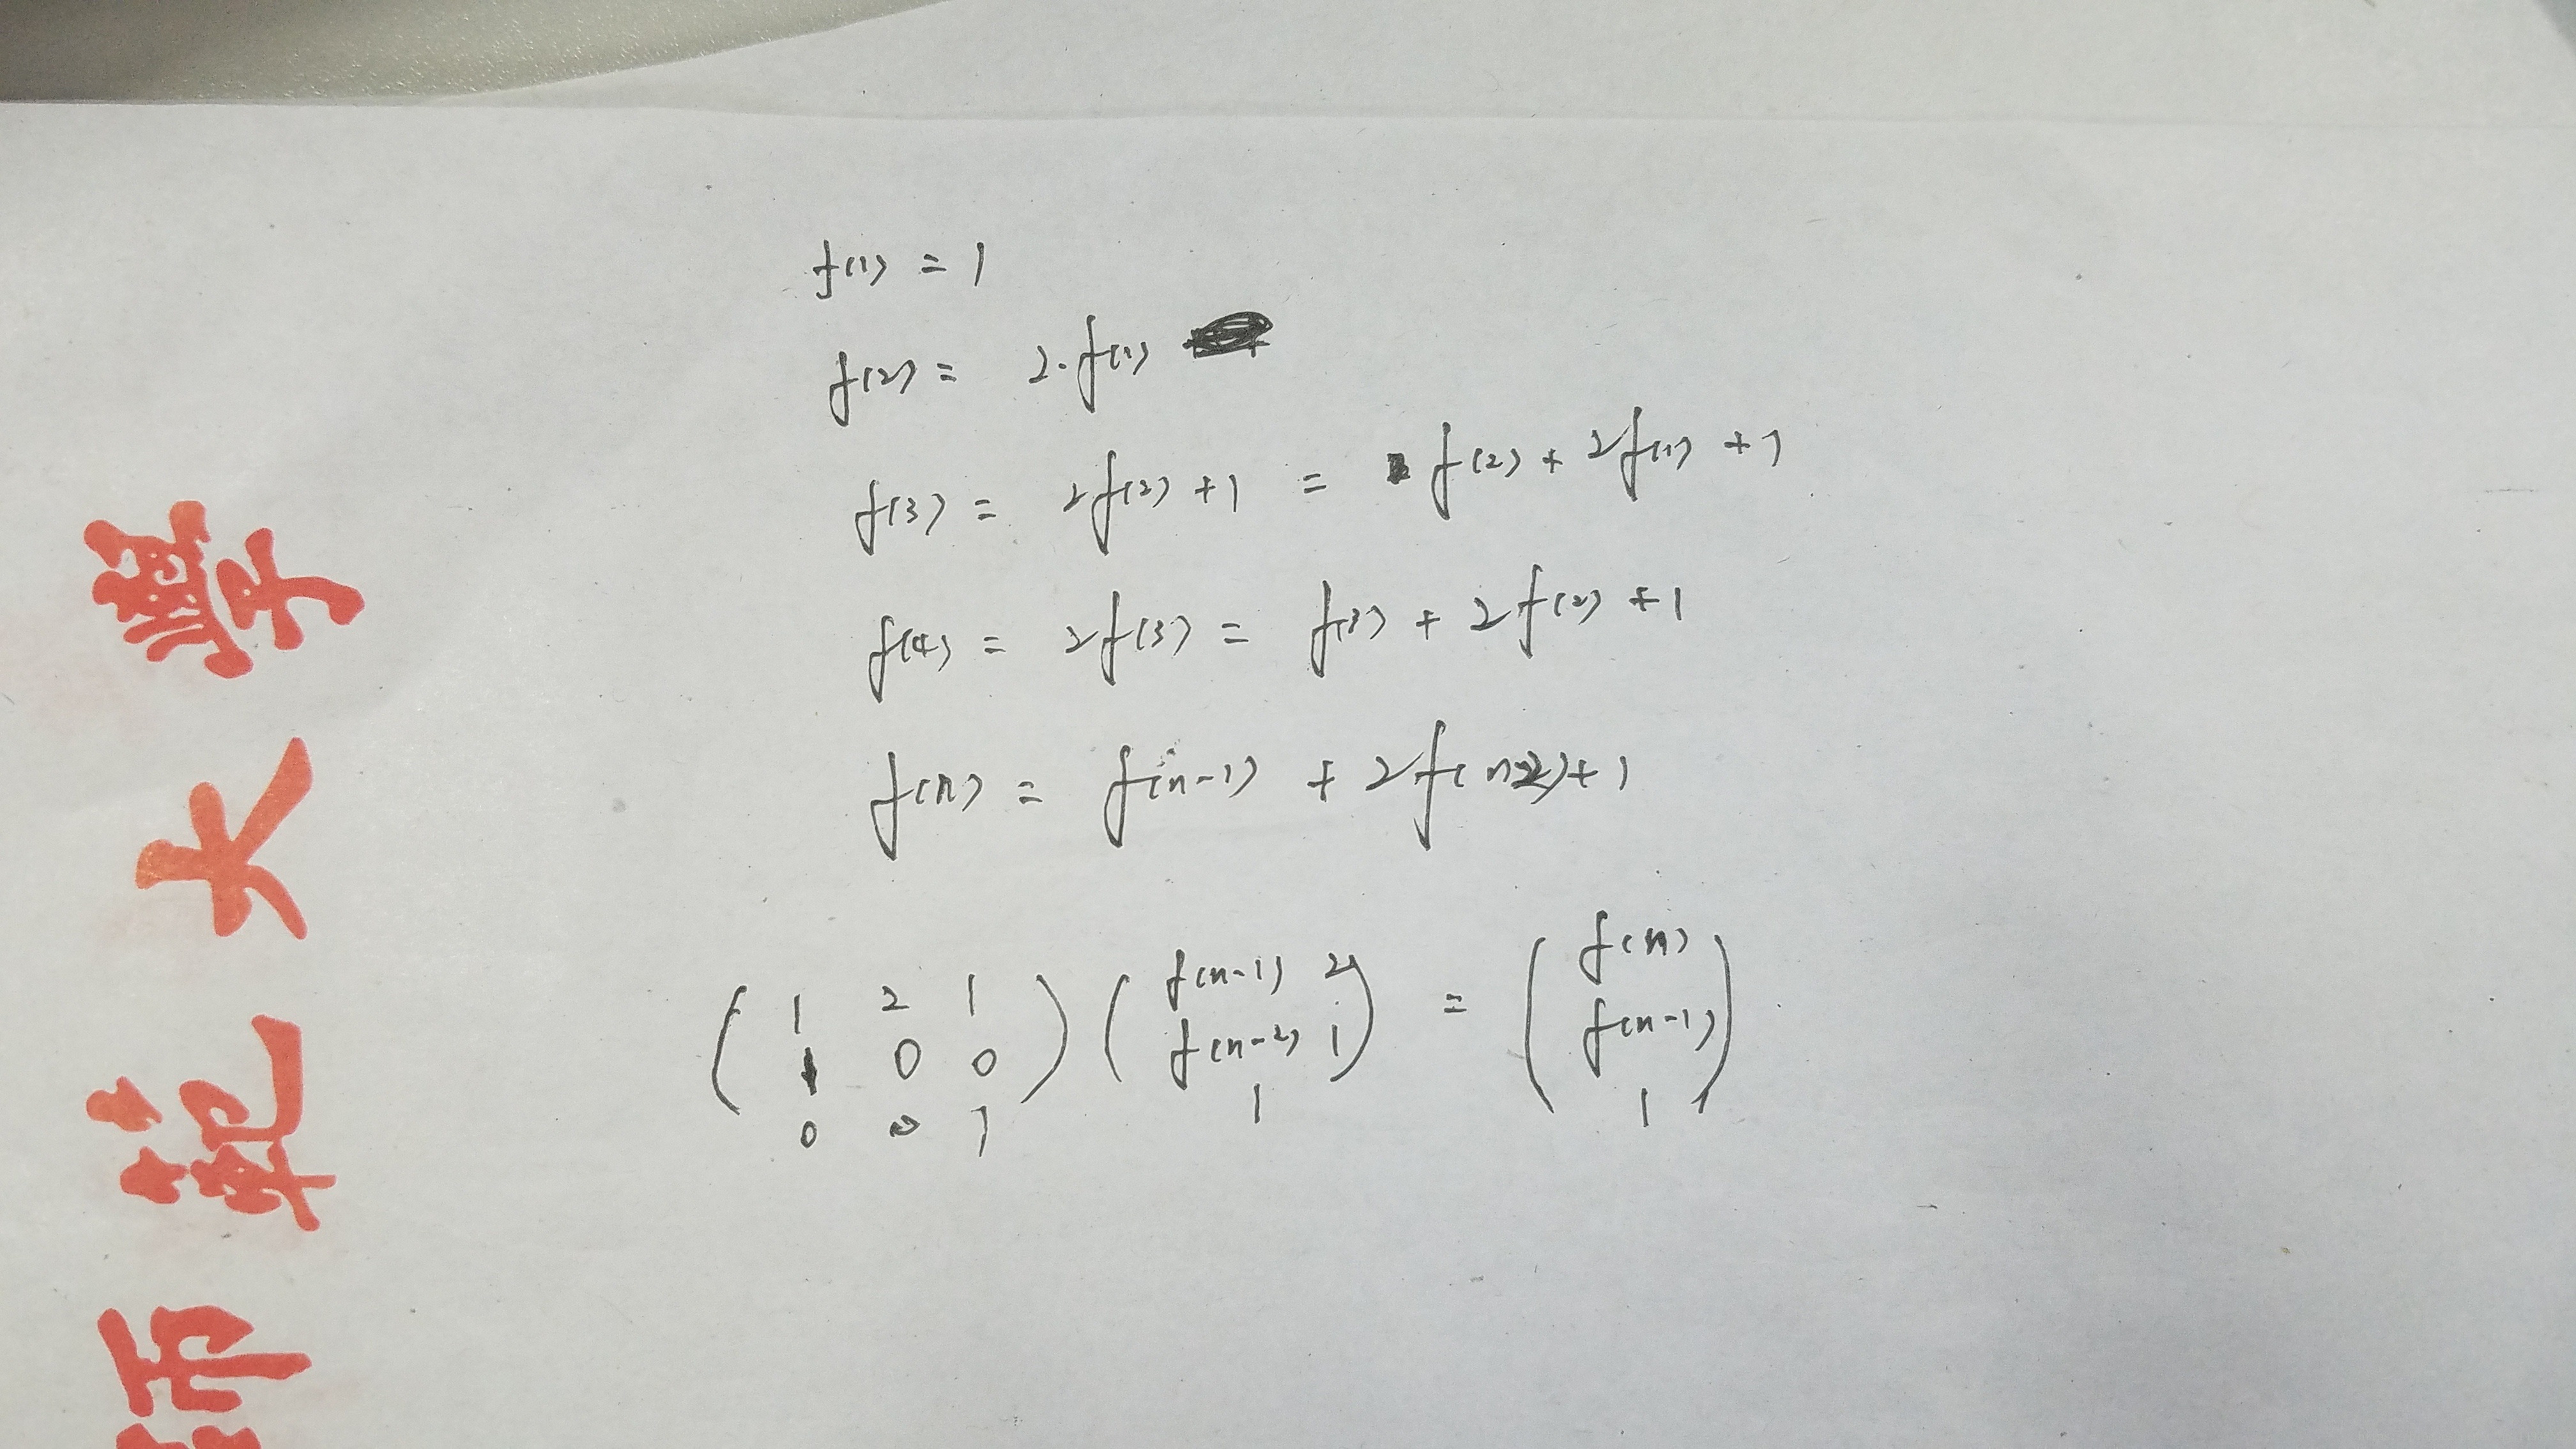 f(1) = 1
f(2) = 2·f(1)
f(3) = 2f(2) + 1 = f(2) + 2f(1) + 1
f(4) = 2f(3) = f(3) + 2f(2) + 1
f(n) = f(n-1) + 2f(n-2) + 1
1 2 1 f(n-1) 2 = f(n)
1 0 0 f(n-2) 1 f(n-1)
0 0 1 1 1
師範大學